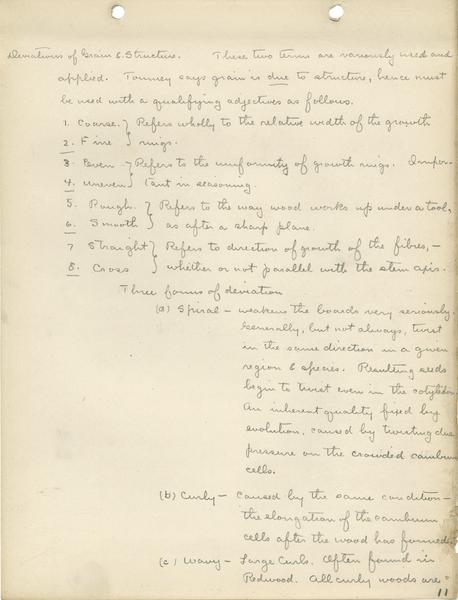 Deviations of Grain & Structure. These two terms are variously used and
applied. Toumey says grain is due to structure, hence must
be used with a qualifying adjectives as follows.
1. Coarse. } Refers wholly to the relative width of the growth
2. Fine } rings.
3. Even } Refers to the uniformity of growth rings. Impor-
4. uneven } tant in seasoning.
5. Rough. } Refers to the way wood works up under a tool,
6. Smooth } as after a sharp plane.
7 Straight } Refers to direction of growth of the fibres, –
8. Cross } whether or not parallel with the stem axis.
Three forms of deviation
(a) Spiral – weakens the boards very seriously.
Generally, but not always, twist
in the same direction in a given
region & species. Resulting seeds
begin to twist even in the cotyledon.
An inherent quality fixed by
evolution, caused by twisting due
pressure on the crowded cambium
cells.
(b) Curly – caused by the same condition –
the elongation of the cambium
cells after the wood has formed.
(c) Wavy – Large Curls. Often found in
Redwood. All curly woods are
11